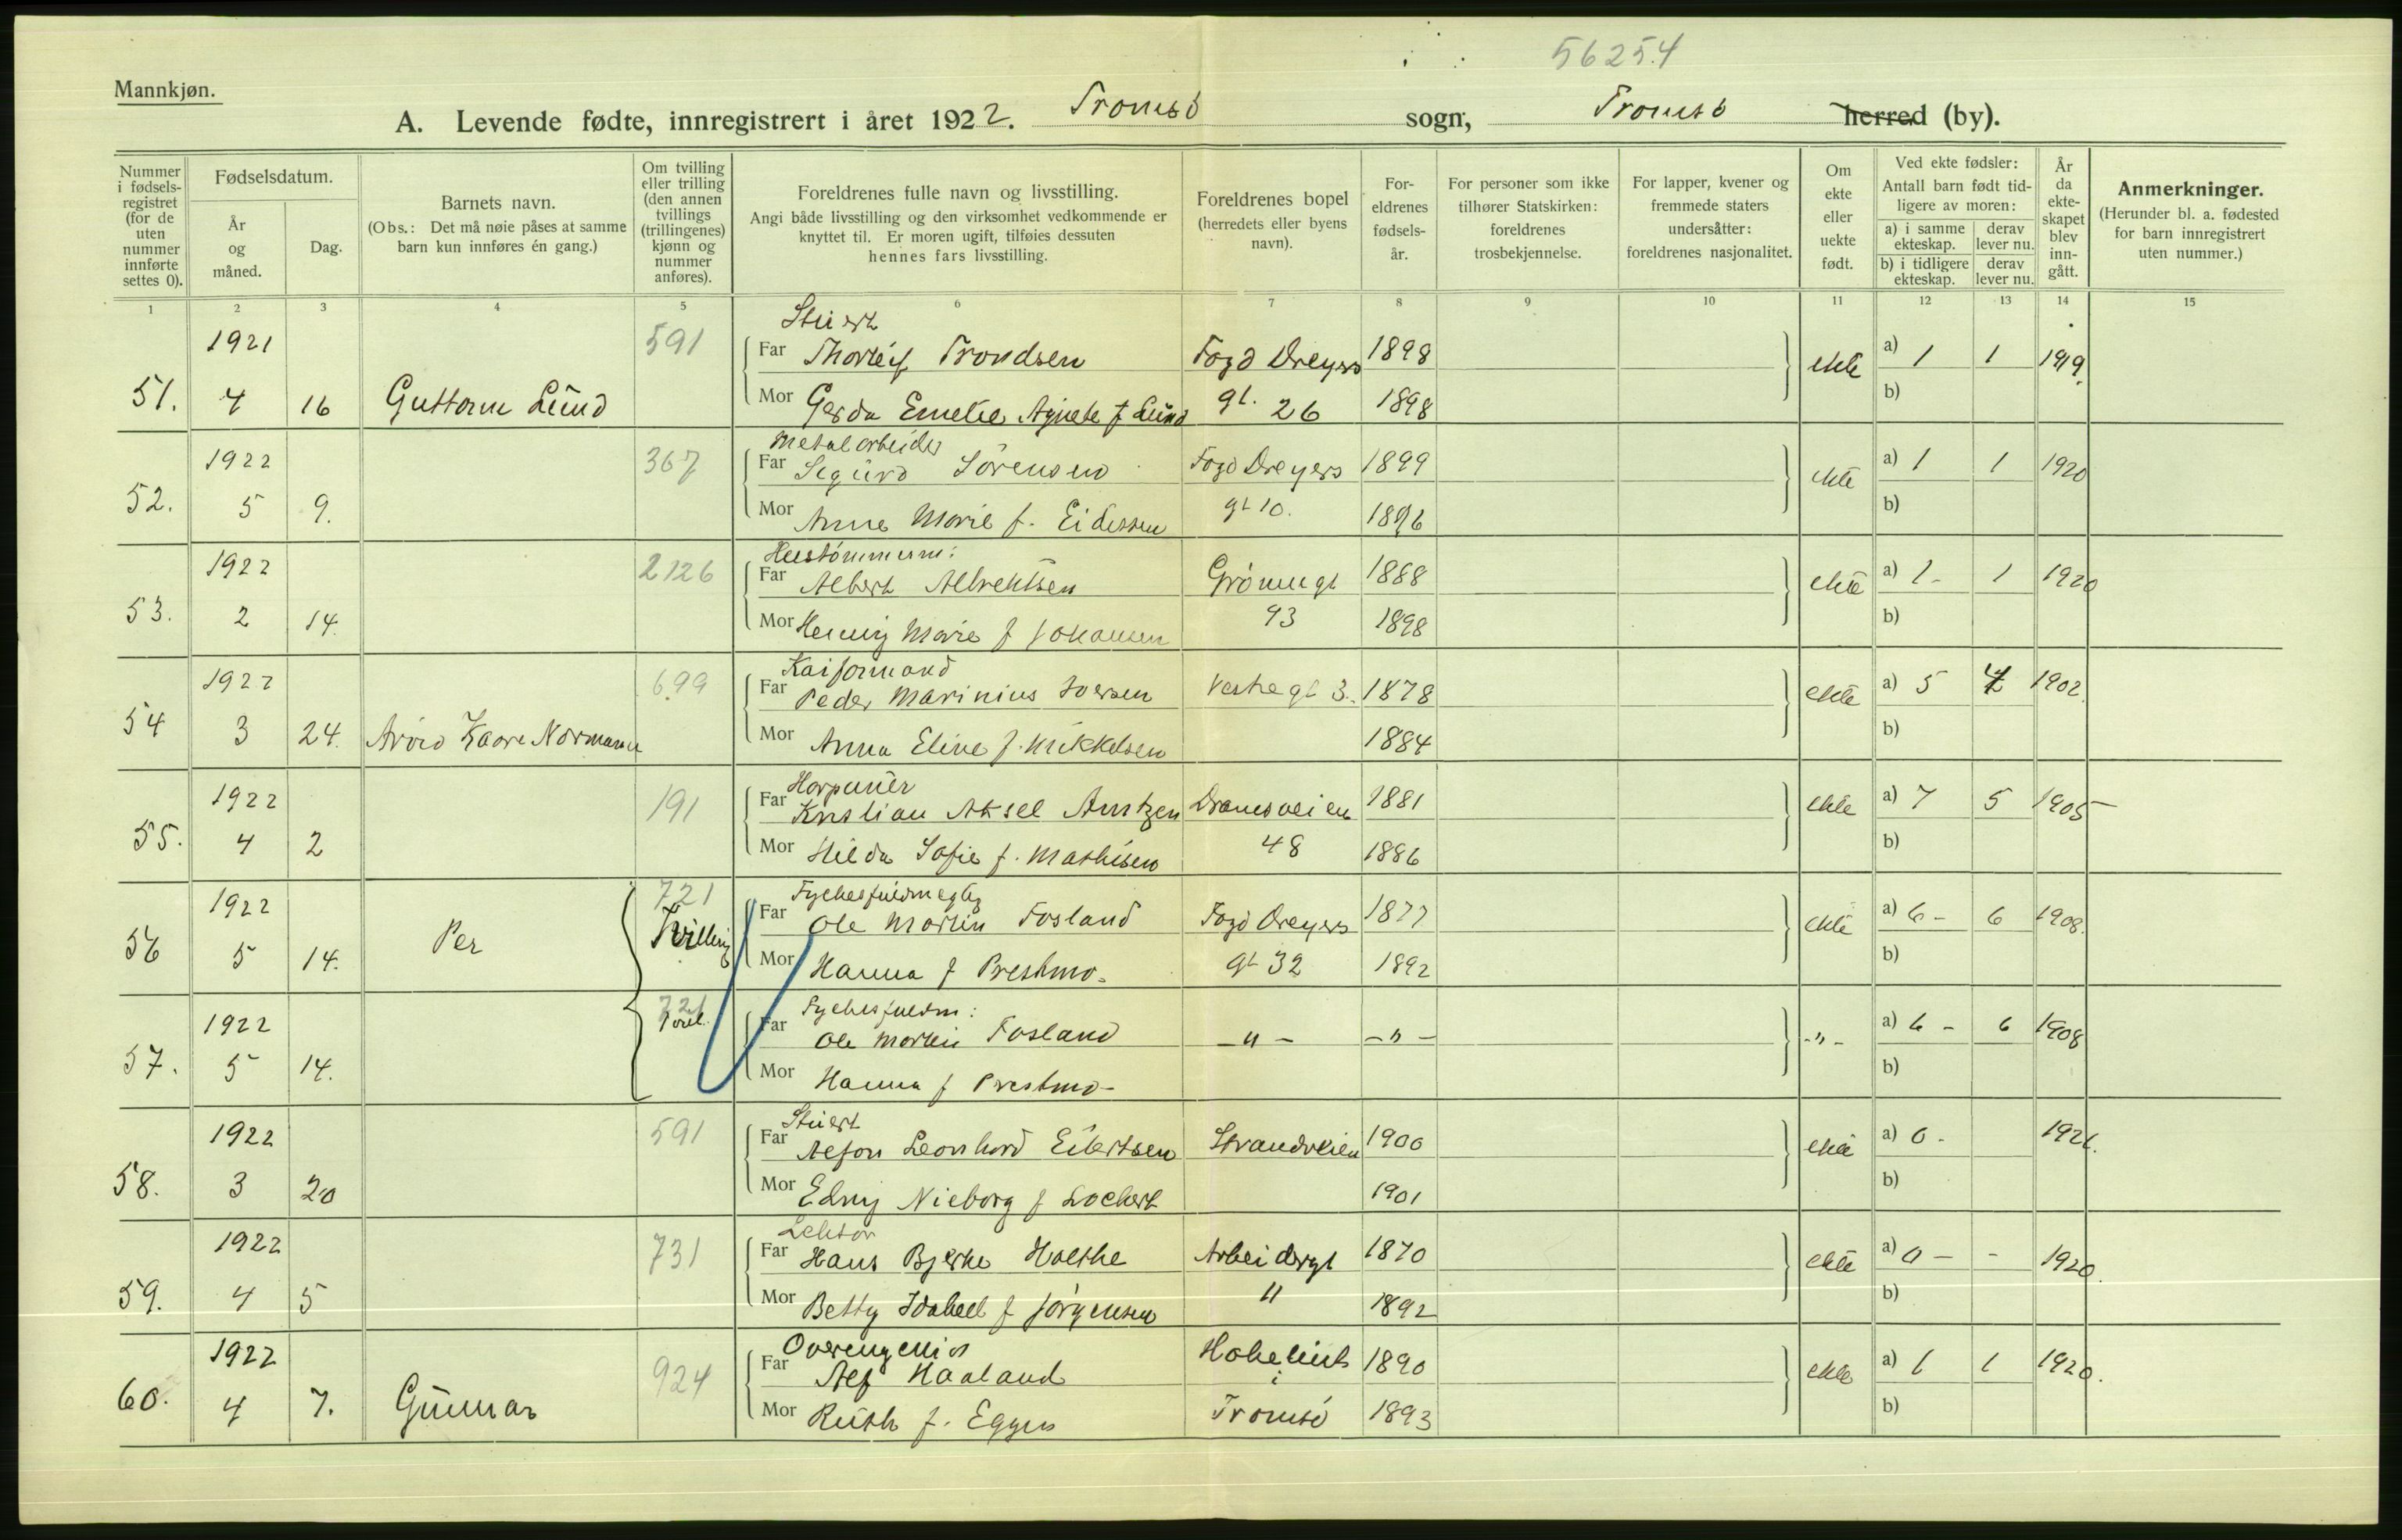 56254
Mannkjøn.
A. Levende fødte, innregistrert i året 1922. Tromsö sogn, Tromsö herred (by).
Nummer i fødselsregistret (for de uten nummer innførte settes 0).
Fødselsdatum.
År og måned.
Dag.
Barnets navn.
(Obs.: Det må nøie påses at samme barn kun innføres én gang.)
Om tvilling eller trilling (den annen tvillings (trillingenes) kjønn og nummer anføres).
Foreldrenes fulle navn og livsstilling.
Angi både livsstilling og den virksomhet vedkommende er knyttet til. Er moren ugift, tilføies dessuten hennes fars livsstilling.
Foreldrenes bopel (herredets eller byens navn).
Foreldrenes fødselsår.
For personer som ikke tilhører Statskirken: foreldrenes trosbekjennelse.
For lapper, kvener og fremmede staters undersåtter: foreldrenes nasjonalitet.
Om ekte eller uekte født.
Ved ekte fødsler: Antall barn født tidligere av moren:
a) i samme ekteskap. derav lever nu.
b) i tidligere ekteskap. derav lever nu.
År da ekteskapet blev inngått.
Anmerkninger.
(Herunder bl. a. fødested for barn innregistrert uten nummer.)
1 2 3 4 5 6 7 8 9 10 11 12 13 14 15
Stuert
1921 591 Far Thorleif Trondsen Fogd Dreyers 1898 ekte a) 1 1 1919.
51. 4 16 Guttorm Lund Mor Gerda Emelie Agnete f Lund gt. 26 1898 b)
Metalarbeider
1922 367 Far Sigurd Sörensen Fogd Dreyers 1899 ekte a) 1 1 1920
52. 5 9. Mor Anna Marie f. Eidissen gt 10. 1896 b)
Hustömmerm:
1922 2126 Far Albert Albrektsen Grönnegt 1888 ekte a) 1- 1 1920
53. 2 14. Mor Henny Marie f Johansen 93 1898 b)
Kaiformand
1922 699 Far Peder Marinius Iversen Vestregt 3. 1878 ekte a) 5 4 1902.
54 3 24. Arvid Kaare Normann Mor Anna Eline f. Mikkelsen 1884 b)
Harpunér
1922 191 Far Kristian Aksel Arntzen Dramsveien 1881 ekte a) 7 5 1905
55. 4 2 Mor Hilda Sofie f. Mathisen 48 1886 b)
721 Fylkesfuldmegtig
1922 Tvilling Far Ole Martin Fosland Fogd Dreyers 1877 ekte a) 6- 6 1908.
56 5 14. Per Mor Hanna f Prestmo. gt 32 1892 b)
721 Fylkesfuldm:
1922 Far Ole Martin Fosland -"- -"- -"- a) 6- 6 1908
57. 5 14. Mor Hanna f Prestmo- b)
Stuert
1922 591 Far Alfon Leonhard Eilertsen Strandveien 1900 ekte a) 0- 1921.
58. 3 20 Mor Edny Nieborg f Lockert 1901 b)
Lektor
1922 731 Far Hans Bjerke Holthe Arbeidergt 1870 ekte a) 0- - 1920.
59. 4 5 Mor Betty Idabell f Jörgensen 11 1892 b)
Overingeniör
1922 924 Far Alf Haaland 1890 ekte a) 1 1 1920.
60. 4 7. Gunnar Mor Ruth f. Eggen i Tromsö 1893 b)